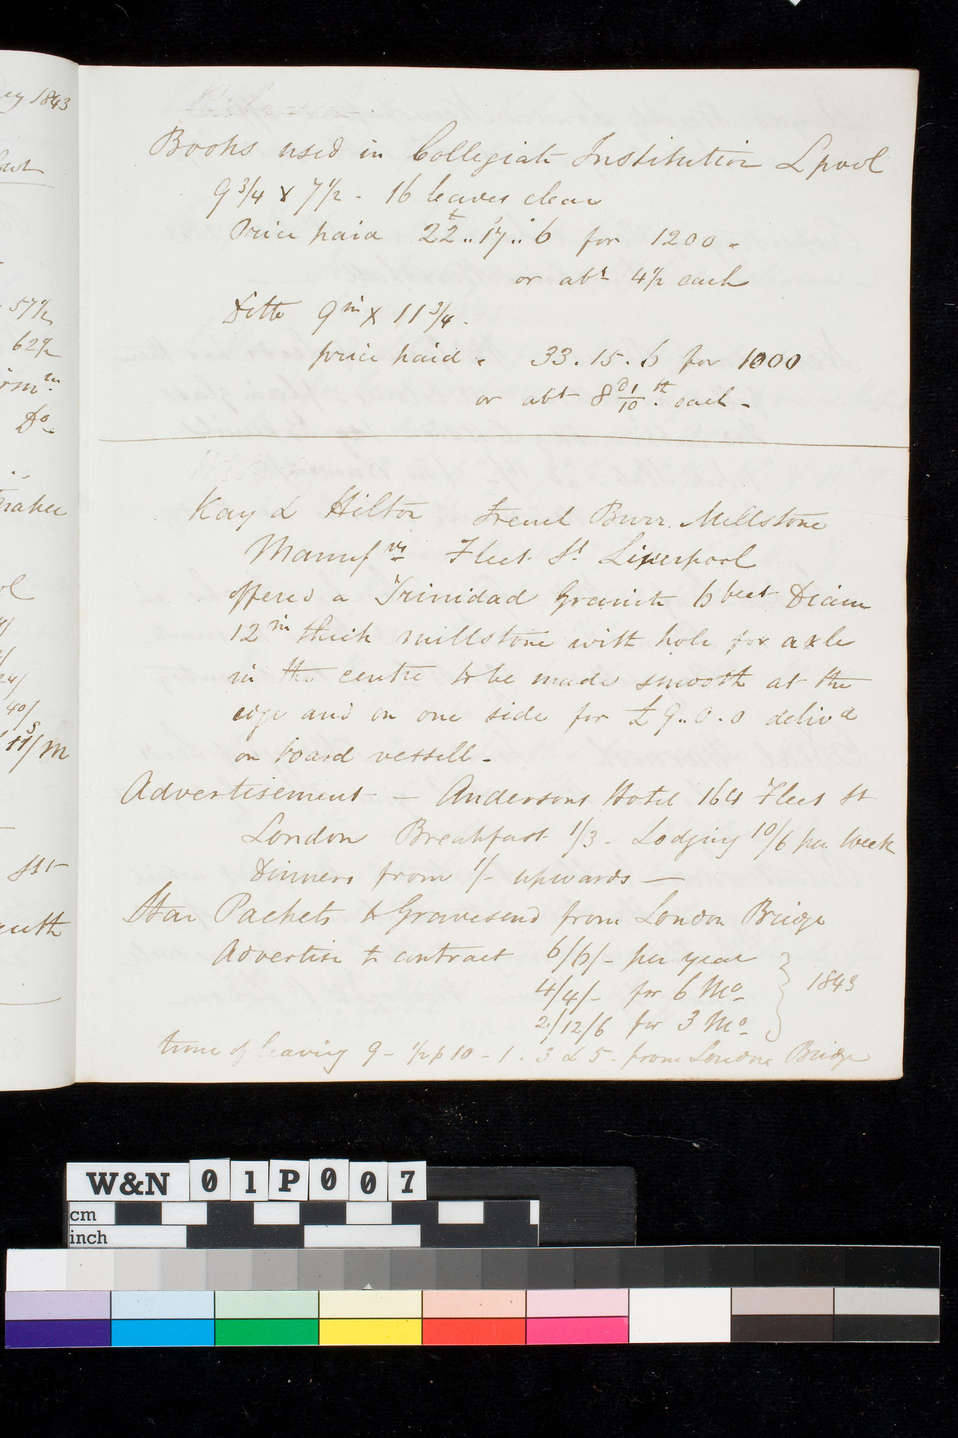 ey 1843
57½
62½
Do
Books used in Collegiate Institution Lpool
9 3/4 x 7½ - 16 leaves clear
Price paid £22..17..6 for 1200 -
or abt 4½ each
Ditto 9 in x 11 3/4 -
price paid - 33.15.6 for 1000
or abt 8d 1/10th each -
Kay & Hilton French Burr Millstone
Manufrs Fleet St Liverpool
offered a Trinidad Granite 6 feet Diam
12 in thick millstone with hole for axle
in the centre to be made smooth at the
edge and on one side for £9..0.0 delivd
on board vessell -
Advertisement - Andersons Hotel 164 Fleet St
London Breakfast 1/3 - Lodging 10/6 per Week
Dinners from 1/- upwards —
Star Packets to Gravesend from London Bridge
Advertise to contract 6/6/- per year
4/4/- for 6 Mo
2/12/6 for 3 Mo
1843
time of leaving 9 - ½p 10 - 1 . 3 & 5 - from London Bridge
W&N 01P007
cm
inch